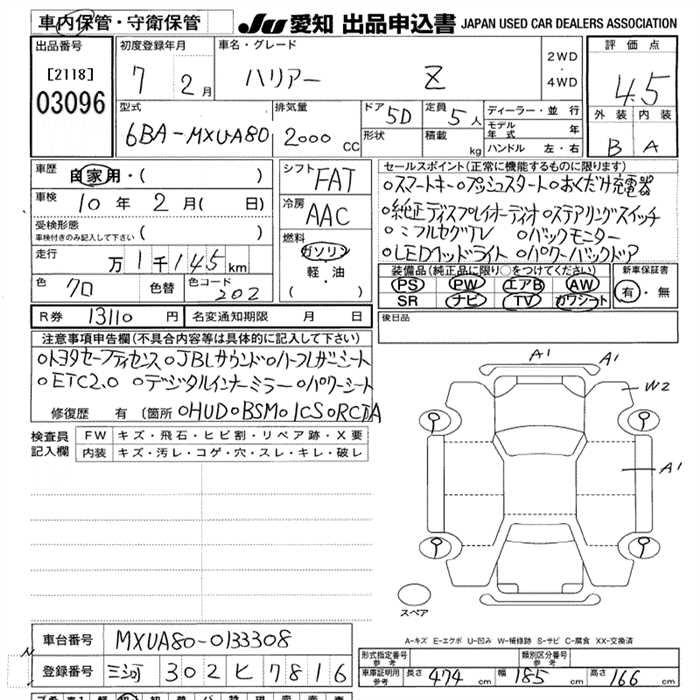 車内保管・守衛保管 JU 愛知 出品申込書 JAPAN USED CAR DEALERS ASSOCIATION
出品番号 初度登録年月 車名・グレード 評価点
[2118] 7 2月 ハリアー Z 2WD・4WD 4.5
03096 型式 排気量 ドア 5D 定員 5人 ディーラー・並行 外装 内装
6BA-MXUA80 2000CC 形状 積載 kg モデル年式 年 ハンドル 左・右 B A
車歴 自家用・( ) シフト FAT セールスポイント(正常に機能するものに限ります)
車検 10年 2月( 日) 冷房 AAC ○スマートキー○プッシュスタート○おくだけ充電器
受検形態 車検付きのみ記入して下さい ( ) ○純正ディスプレイオーディオ○ステアリングスイッチ
走行 万1千145km 燃料 ガソリン 軽・油 ( ) ○フルセグTV ○バックモニター
○LEDヘッドライト ○パワーバックドア
色 クロ 色替 色コード 202 装備品(純正品に限り○をつけてください) 新車保証書
PS PW エアB AW 有・無
SR ナビ TV ガワシート
R券 13110円 名変通知期限 月 日 後日品
注意事項申告欄(不具合内容等は具体的に記入して下さい)
○トヨタセーフティセンス○JBLサウンド○ハーフレザーシート
○ETC2.0 ○デジタルインナーミラー○パワーシート
修復歴 有 [箇所 ○HUD○BSM○ICS○RCTA
A1 A1 W2 A1
検査員記入欄 FW キズ・飛石・ヒビ割・リペア跡・X要
内装 キズ・汚レ・コゲ・穴・スレ・キレ・破レ
スペア
A-キズ E-エクボ U-凹み W-補修跡 S-サビ C-腐食 XX-交換済
車台番号 MXUA80-0133308 形式指定番号 参考 類別区分番号 参考
登録番号 三河 302 ヒ 7816 車庫証明用参考 長さ 474cm 幅 185cm 高さ 166cm